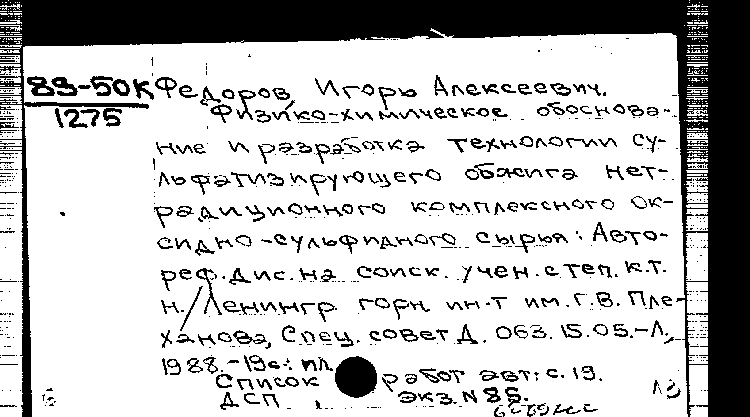 89-50К Федоров, Игорь Алексеевич.
1275 Физико-химическое обоснова-
ние и разработка технологии су-
льфатизирующего обжига нет-
радиционного комплексного ок-
сидно-сульфидного сырья: Авто-
реф. дис. на соиск. учен. степ. к.т.
н./Ленингр. горн. ин-т им. Г.В. Пле-
ханова, Спец. совет Д. 063.15.05.-Л.,
1988.-19с.: ил.
Список работ авт.: с. 19.
ДСП экз. N 86.